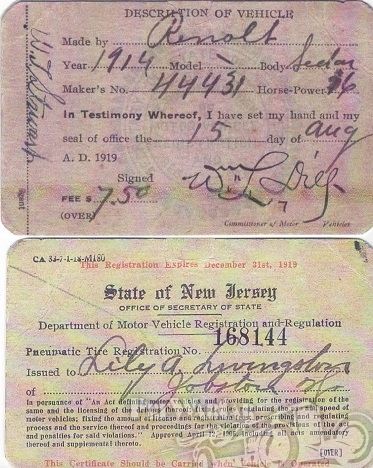 DESCRIPTION OF VEHICLE
Made by Renolt
Year 1914 Model Body Sedan
Maker's No. 44431 Horse-Power 26
In Testimony Whereof, I have set my hand and my
seal of office the 15 day of Aug
A. D. 1919
Signed
FEE $ 7.50
(OVER)
Commissioner of Motor Vehicles
agent
CA 33-7-1-18-M180
This Registration Expires December 31st, 1919
State of New Jersey
OFFICE OF SECRETARY OF STATE
Department of Motor Vehicle Registration and Regulation
Pneumatic Tire Registration No. 168144
Issued to Lily A. Livingston
of Jobstown
In pursuance of "An Act defining motor vehicles and providing for the registration of
the same and the licensing of the drivers thereof; regulating the use and speed of
motor vehicles; fixing the amount of license and registration fees; prescribing and regulating
process and the service thereof and proceedings for the violation of the provisions of the act
and penalties for said violations." Approved April 12, 1906, including all acts amendatory
thereof and supplemental thereto.
(OVER)
This Certificate Should be Carried when Vehicle is Operated